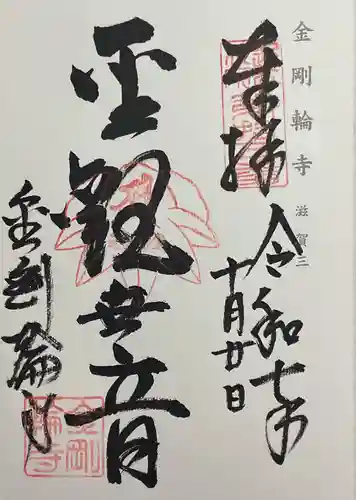 金剛輪寺 滋賀三
奉拝
令和七年
十月廿日
聖観世音
金剛輪寺
金剛輪寺